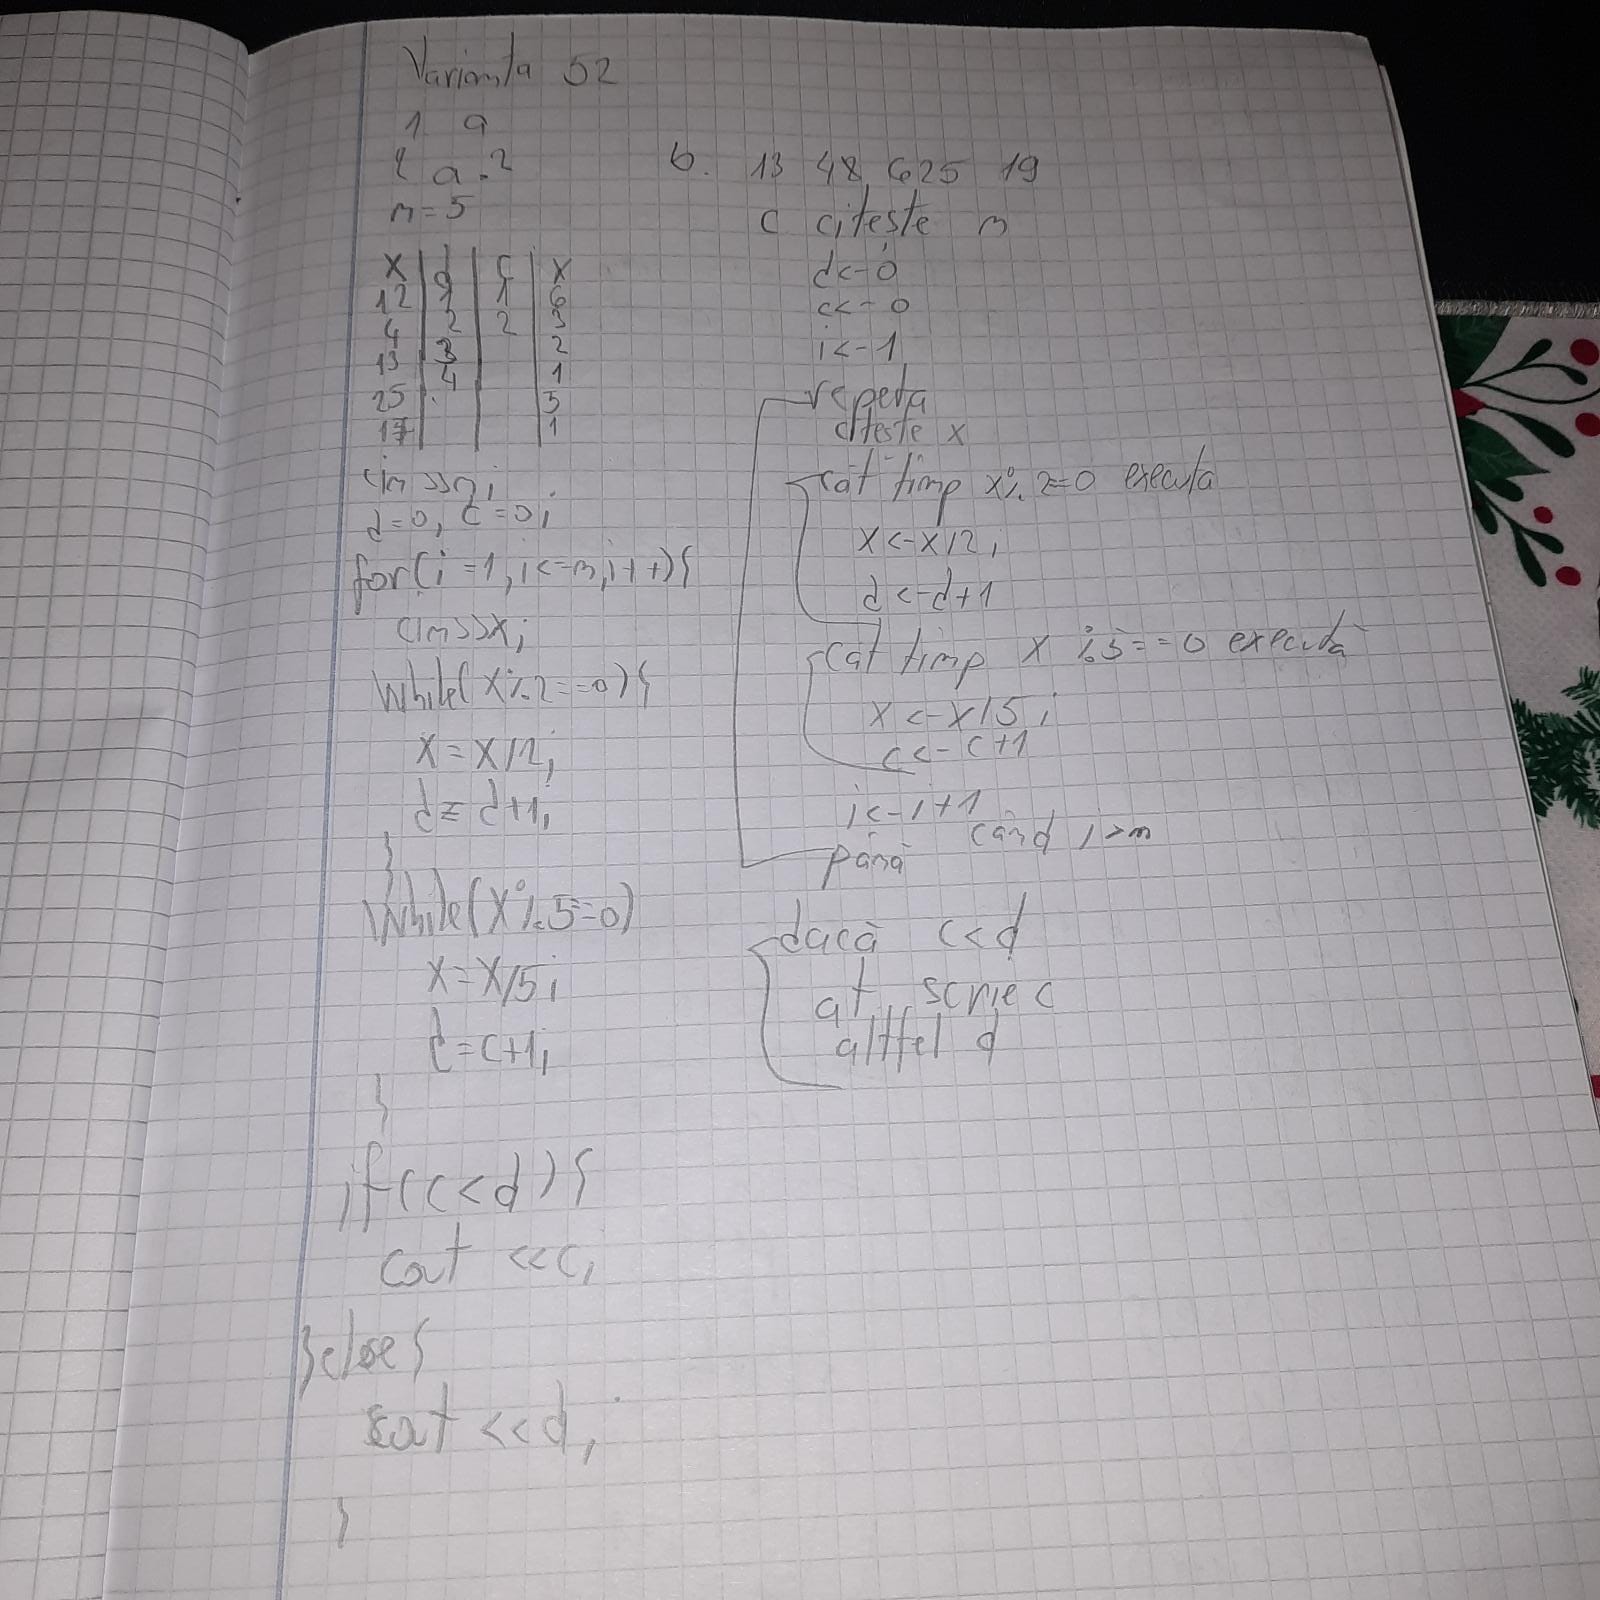 Varianta 52
1 a
a. 2
n=5
x | d | c | x
12 | 1 | 1 | 6
4 | 2 | 2 | 3
13 | 3 | | 2
25 | 4 | | 1
17 | | | 5
1
cin>>n;
d=0, c=0;
for(i=1,i<=n,i++){
cin>>x;
while(x%2==0){
x=x/2;
d=d+1;
}
while(x%5=0)
x=x/5;
c=c+1;
}
if(c<d){
cout <<c;
}else{
cout <<d;
}
b. 13 48, 625 19
c citește n
d<-0
c<-0
i<-1
repetă
citește x
cât timp x%2=0 executa
x<-x/2;
d<-d+1
cât timp x%5==0 execută
x<-x/5;
c<-c+1
i<-i+1
până când i>n
dacă c<d
at scrie c
altfel d